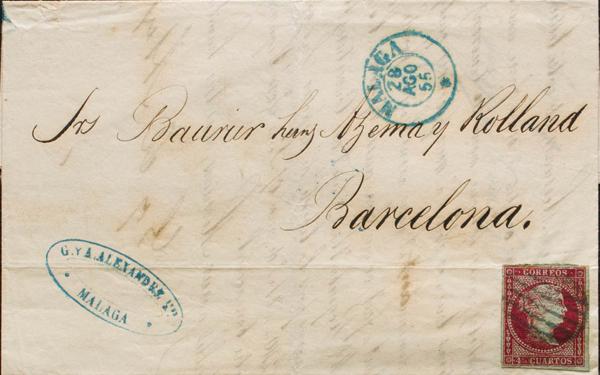 MALAGA
28
AGO
55
Srs Baurier hers Azema y Rolland
Barcelona.
G. Y A. ALEXANDRE
MALAGA
CORREOS
4 CUARTOS